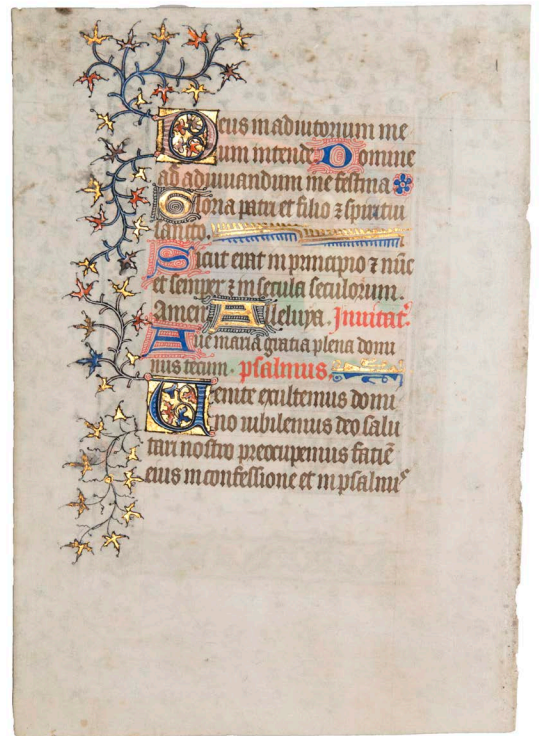 Deus in adiutorium me
um intende Domine
ad adiuuandum me festina
Gloria patri et filio ⁊ spiritui
sancto.
Sicut erat in principio ⁊ nūc
et semper ⁊ in secula seculorum.
Amen Alleluya. Inuitat᷒.
Aue maria gratia plena domi
nus tecum. psalmus
Uenite exultemus domi
no iubilemus deo salu
tari nostro preocupemus faciē
eius in confessione et in psalmis